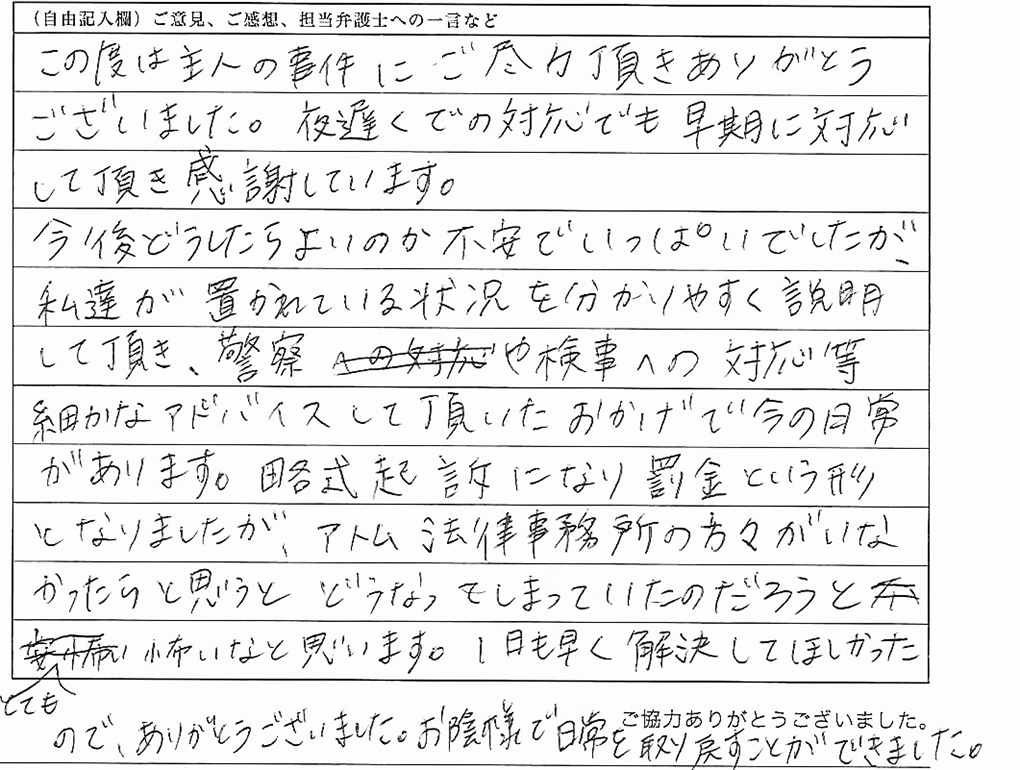 （自由記入欄）ご意見、ご感想、担当弁護士への一言など
この度は主人の事件にご尽力頂きありがとう
ございました。夜遅くでの対応でも早期に対応
して頂き感謝しています。
今後どうしたらよいのか不安でいっぱいでしたが、
私達が置かれている状況を分かりやすく説明
して頂き、警察への対応や検事への対応等
細かなアドバイスして頂いたおかげで今の日常
があります。略式起訴になり罰金という形
となりましたが、アトム法律事務所の方々がいな
かったらと思うとどうなってしまっていたのだろうと不
安怖い怖いなと思います。1日も早く解決してほしかった
とても
ご協力ありがとうございました。
ので、ありがとうございました。お陰様で日常を取り戻すことができました。